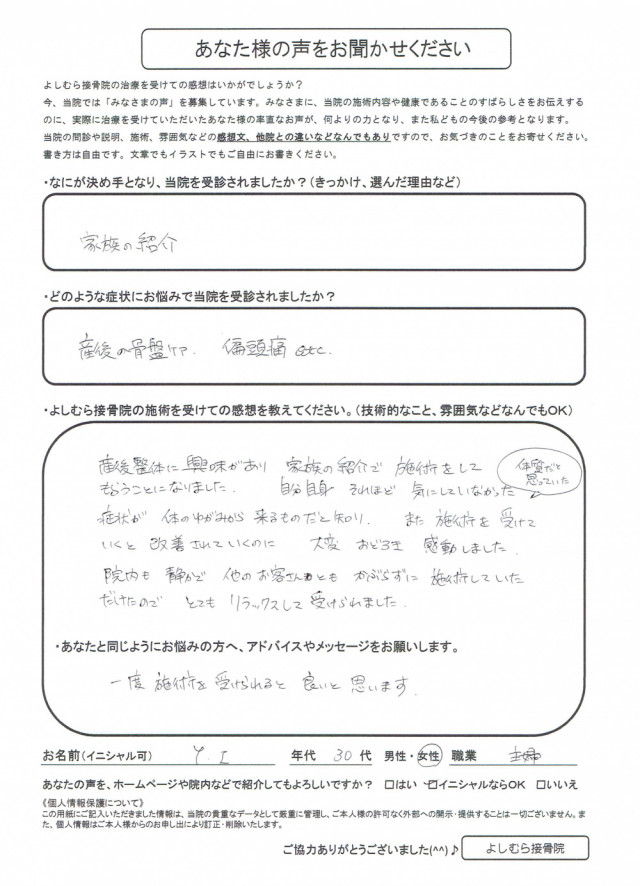 あなた様の声をお聞かせください
よしむら接骨院の治療を受けての感想はいかがでしょうか？
今、当院では「みなさまの声」を募集しています。みなさまに、当院の施術内容や健康であることのすばらしさをお伝えする
のに、実際に治療を受けていただいたあなた様の率直なお声が、何よりの力となり、また私どもの今後の参考となります。
当院の問診や説明、施術、雰囲気などの感想文、他院との違いなどなんでもありですので、お気づきのことをお寄せください。
書き方は自由です。文章でもイラストでもご自由にお書きください。
・なにが決め手となり、当院を受診されましたか？（きっかけ、選んだ理由など）
家族の紹介
・どのような症状にお悩みで当院を受診されましたか？
産後の骨盤ケア. 偏頭痛 etc.
・よしむら接骨院の施術を受けての感想を教えてください。（技術的なこと、雰囲気などなんでもOK）
産後整体に興味があり 家族の紹介で 施術をして
もらうことになりました. 自分自身 それほど 気にしていなかった
体質だと
思っていた
症状が 体のゆがみから 来るものだと知り. また 施術を 受けて
いくと 改善されていくのに 大変 おどろき 感動しました.
院内も 静かで 他のお客さんとも かぶらずに 施術していた
だけたので とても リラックスして 受けられました.
・あなたと同じようにお悩みの方へ、アドバイスやメッセージをお願いします。
一度 施術を 受けられると 良いと 思います.
お名前（イニシャル可） Y. I 年代 30 代 男性・女性 職業 主婦
あなたの声を、ホームページや院内などで紹介してもよろしいですか？ □はい ☑イニシャルならOK □いいえ
《個人情報保護について》
この用紙にご記入いただきました情報は、当院の貴重なデータとして厳重に管理し、ご本人様の許可なく外部への開示・提供することは一切ございません。ま
た、個人情報はご本人様からのお申し出により訂正・削除いたします。
ご協力ありがとうございました(^^)♪ よしむら接骨院